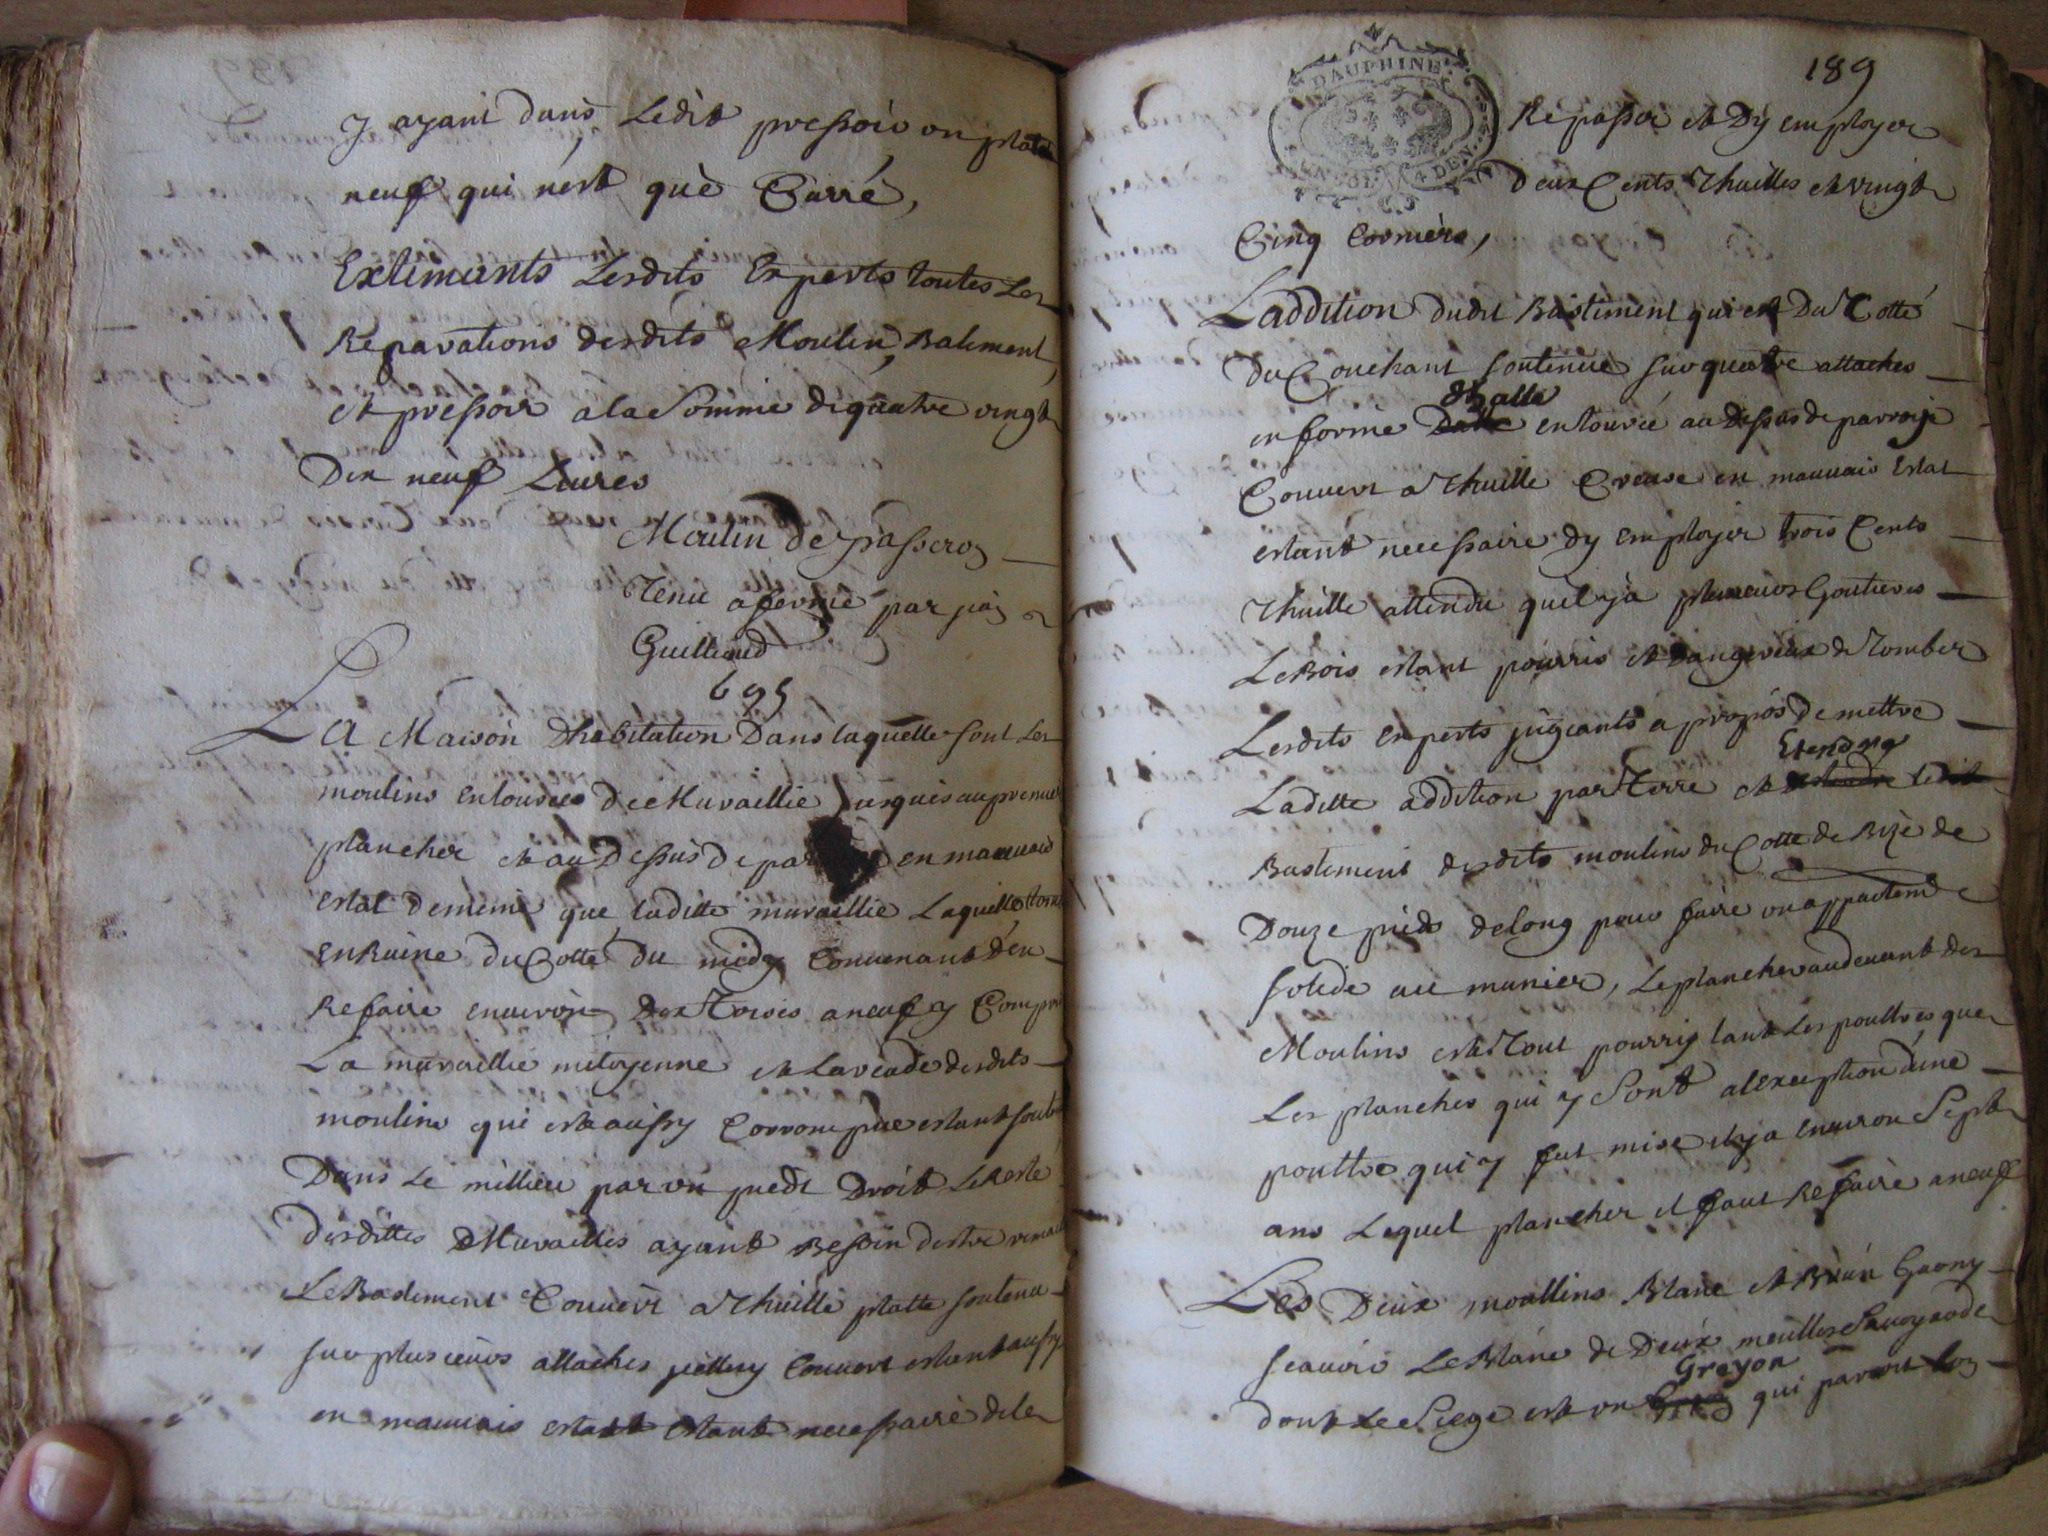 J ayant dans Ledit pressoir un plat
neuf qui n'est què Carré,
Extimants Lesdits Experts toutes Les
Reparations desdits Moulin, Batiment
et pressoir a la Somme de quatre vingt
Dix neuf Liures
Moulin de passeron
Tenu a ferme par
Guilliaud
695
La Maison Dhabitation Dans laquelle sont Les
moulins entourées De Muraillie jusques au premier
plancher et au Dessus de en mauuais
estat De meme que laditte muraillie Laquelle
en Ruine du Cotté du midy Conuenant d'en
Refaire enuiron Dix Toises a neuf y Compris
La muraillie mitoyenne et desdits
moulins qui est aussy Corrompue estant
Dans Le millieu par un pied Droit Le Reste
desdittes Murailles ayant Besoin destre
Le Bastiment Couuert a Thuille platte soutenu
sur plusieurs attaches Couuert estant aussy
en mauuais estat Estant necessaire de le
189
DAUPHINE
4 DEN.
Repasser et Dy employer
deux Cents Thuilles et vingt
Cinq Corniers,
Laddition dudit Bastiment qui est Du Cotté
du Couchant soutenue sur quatre attaches
dhalle
en forme entourée au Dessus de parroye
Couuert a Thuille Creuse en mauuais Estat
estant necessaire dy employer trois Cents
Thuille attendu quil y a plusieurs Goutieres
Le Bois estant pourris et Dangereux de Tomber
Lesdits Experts jugeants a propos De mettre
Etendre
Laditte addition par Terre et ledit
Bastiment desdits moulins du Cotté de Bize de
Douze pieds de long pour faire un appartem
solide au munier, Le plancher au deuant des
Moulins est Tout pourris tant Les pouttres que
Les planches qui y Sont a lexception d'une
pouttre qui y fut mise il y a enuiron Sept
ans Lequel plancher il faut Refaire a neuf
Les Deux moullins Blanc et Brun Garny
scauoir Le Blanc de Deux meulles Sauoyarde
Greyon
dont Le Siege est un qui paroit bon